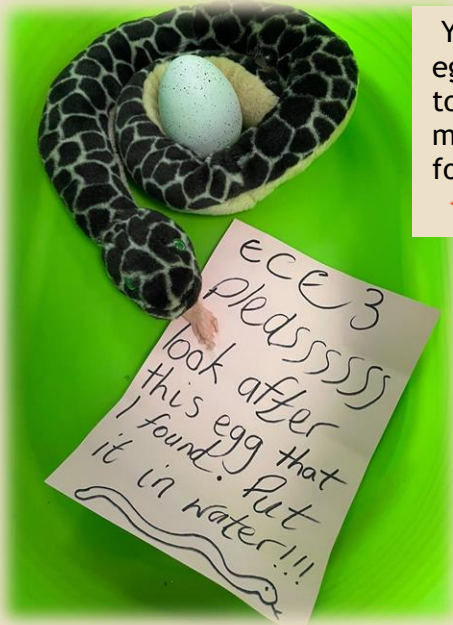 ECE 3
pleassssss
look after
this egg that
I found. Put
it in water!!!